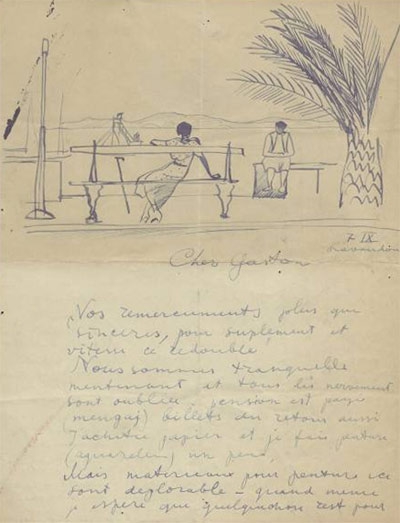 7 IX
Lavandou
Cher Gaston
Vos remerciments plus que
sinceres, pour suplement et
vitesse ce redouble
Nous sommes tranquelle
mentinant et tous les
sont oubliee. pension est payé
(mengaj) billets du retour aussi
J'achetee papier et je fais
(aquarelen) un peu,
Mais materiaux pour penture ice
sont deplorable - quand meme
j espere que quelquechose rest pour